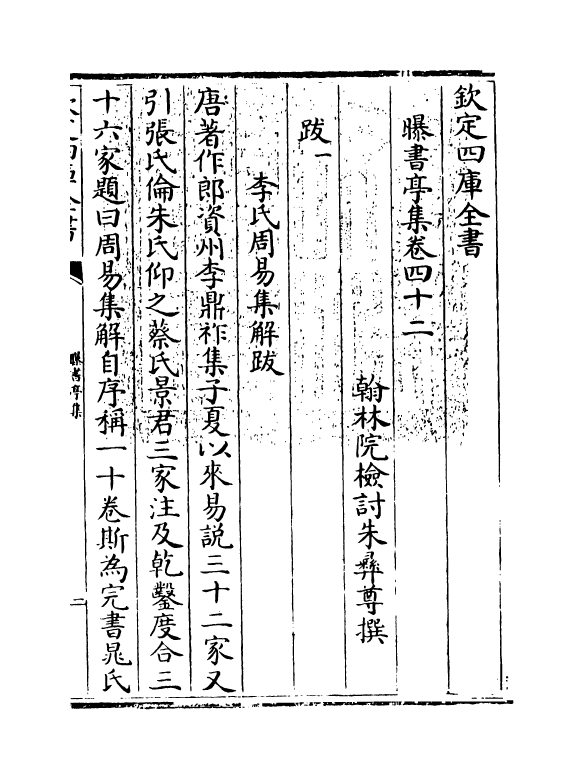 欽定四庫全書
曝書亭集卷四十二
翰林院檢討朱彝尊撰
跋一
李氏周易集解跋
唐著作郎資州李鼎祚集子夏以來易説三十二家又
引張氏倫朱氏仰之蔡氏景君三家注及乾鑿度合三
十六家題曰周易集解自序稱一十卷斯為完書晁氏
曝書亭集